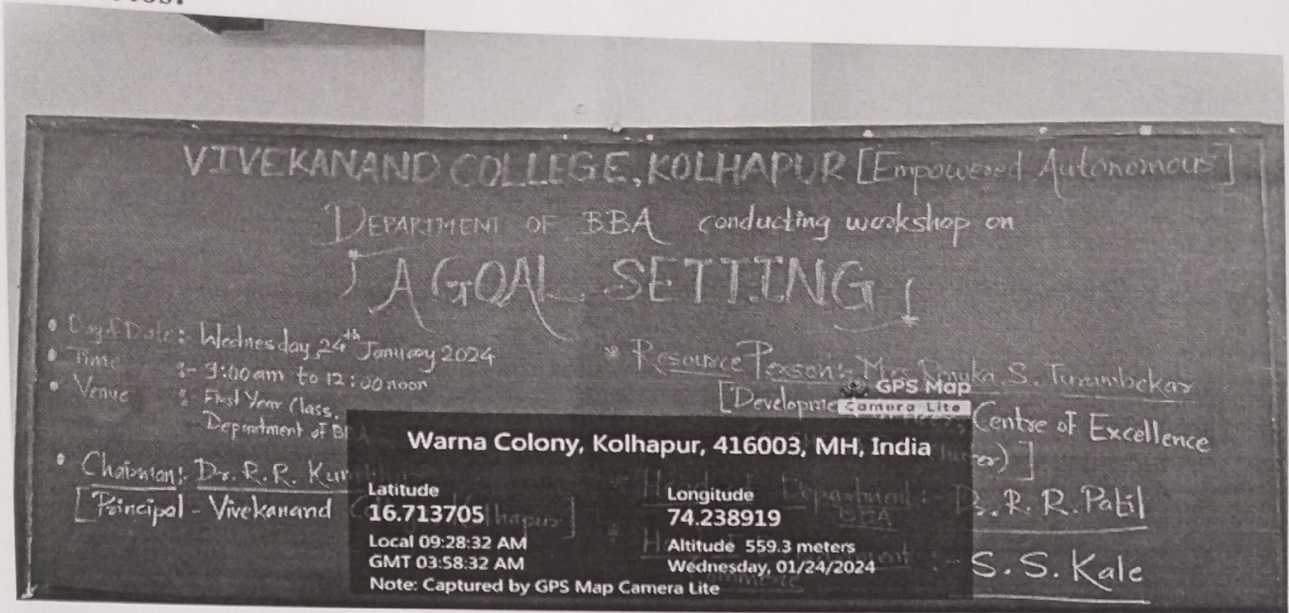 VIVEKANAND COLLEGE, KOLHAPUR [Empowered Autonomous]
DEPARTMENT OF BBA conducting workshop on
A GOAL SETTING
• Day & Date : Wednesday, 24th January 2024
• Time :- 9:00 am to 12:00 noon
• Venue : First Year Class,
Department of
• Chairman:- Dr. R. R.
[Principal - Vivekanand Kolhapur]
* Resource Person:- Mrs. S. Turambekar
Centre of Excellence
Department :- R. R. Patil
BBA
S. S. Kale
GPS Map
Camera Lite
Warna Colony, Kolhapur, 416003, MH, India
Latitude
16.713705
Longitude
74.238919
Local 09:28:32 AM
GMT 03:58:32 AM
Altitude 559.3 meters
Wednesday, 01/24/2024
Note: Captured by GPS Map Camera Lite